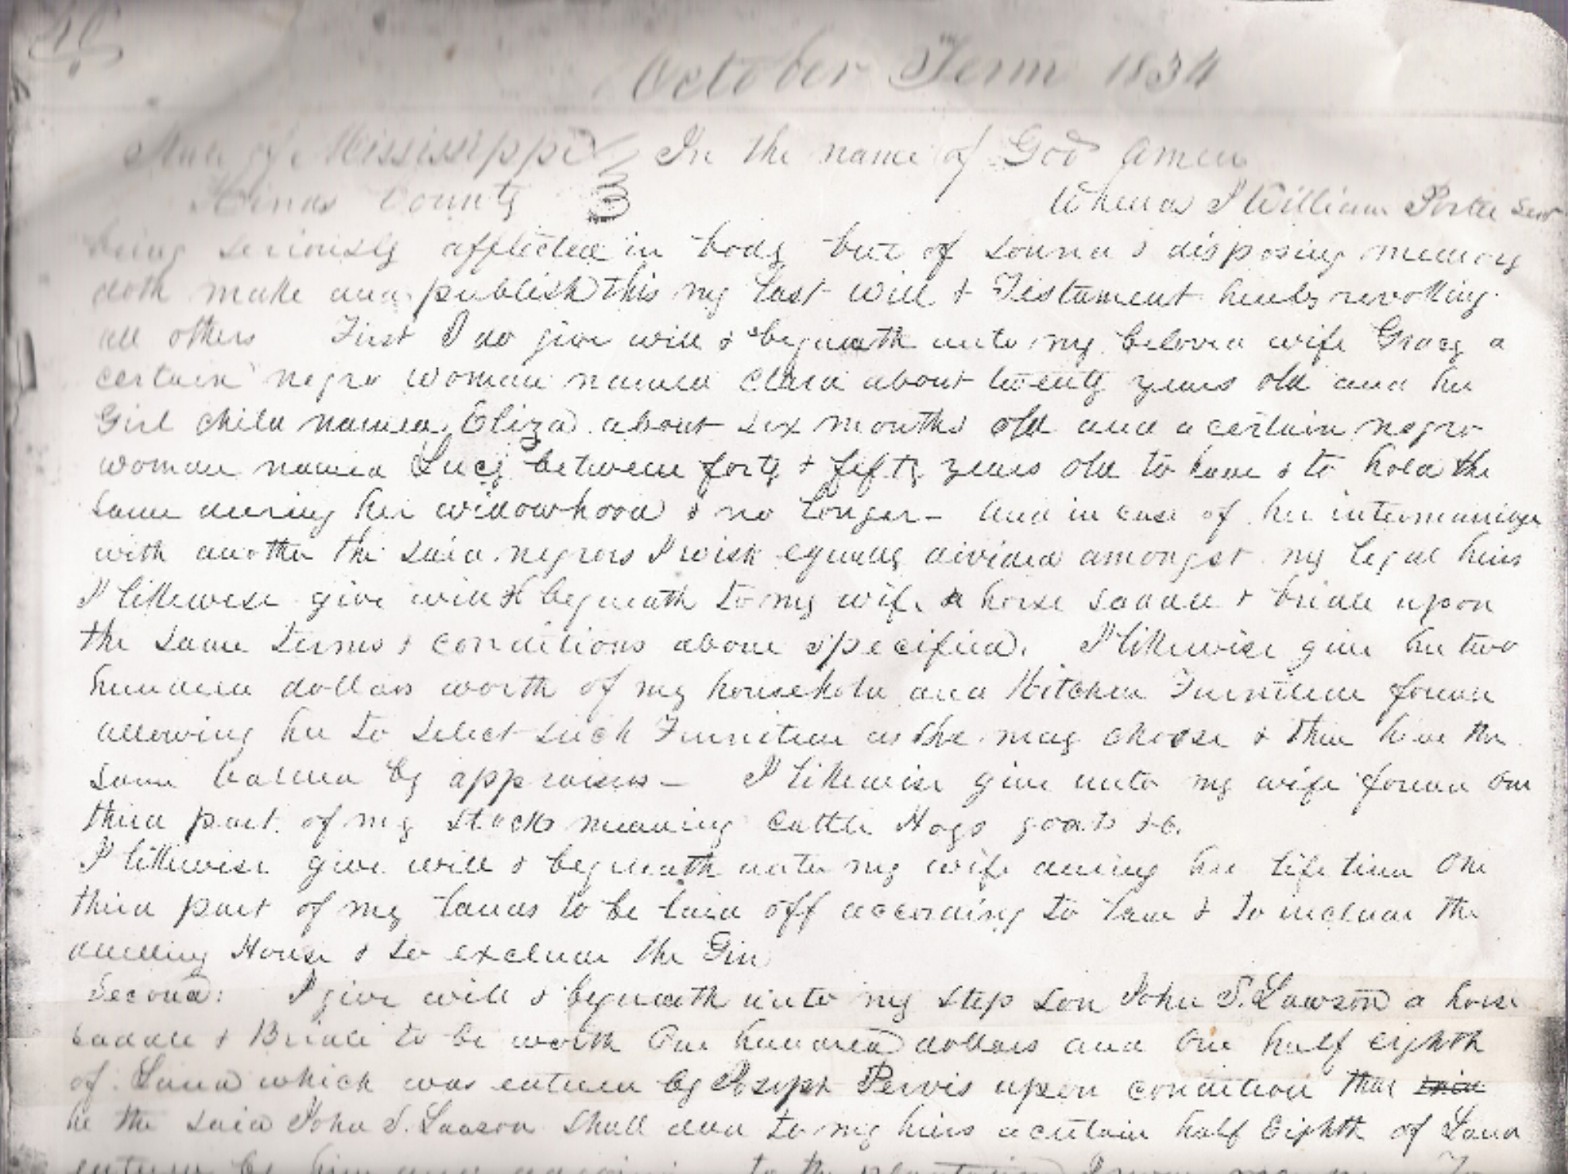 October Term 1834
State of Mississippi In the name of God Amen
Hinds County Whereas I William Porter Senr
being seriously afflicted in body but of sound & disposing memory
doth make and publish this my last will & Testament hereby revoking
all others First I do give will & bequeath unto my beloved wife Gracy a
certain negro woman named Clara about twenty years old and her
Girl child named Eliza about six months old and a certain negro
woman named Lucy between forty & fifty years old to have & to hold the
same during her widowhood & no longer - And in case of her intermarriage
with another the said negros I wish equally divided amongst my legal heirs
I likewise give will & bequeath to my wife a horse saddle & bridle upon
the same terms & conditions above specified. I likewise give her two
hundred dollars worth of my household and Kitchen Furniture forever
allowing her to select such Furniture as she may choose & then have the
same valued by appraisers - I likewise give unto my wife forever one
third part of my stock meaning Cattle Hogs goats &c.
I likewise give will & bequeath unto my wife during her life time one
third part of my lands to be laid off according to law & to include the
dwelling House & to exclude the Gin
Second: I give will & bequeath unto my step son John S. Lawson a horse
saddle & Bridle to be worth One hundred dollars and One half eighth
of Land which was entered by Joseph Pervis upon condition that said
he the said John S. Lawson shall deed to my heirs a certain half Eighth of Land
entered by him and to the I now